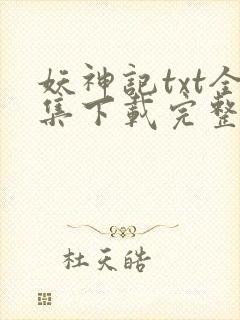 妖神記txt全
集下載完整
杜天皓